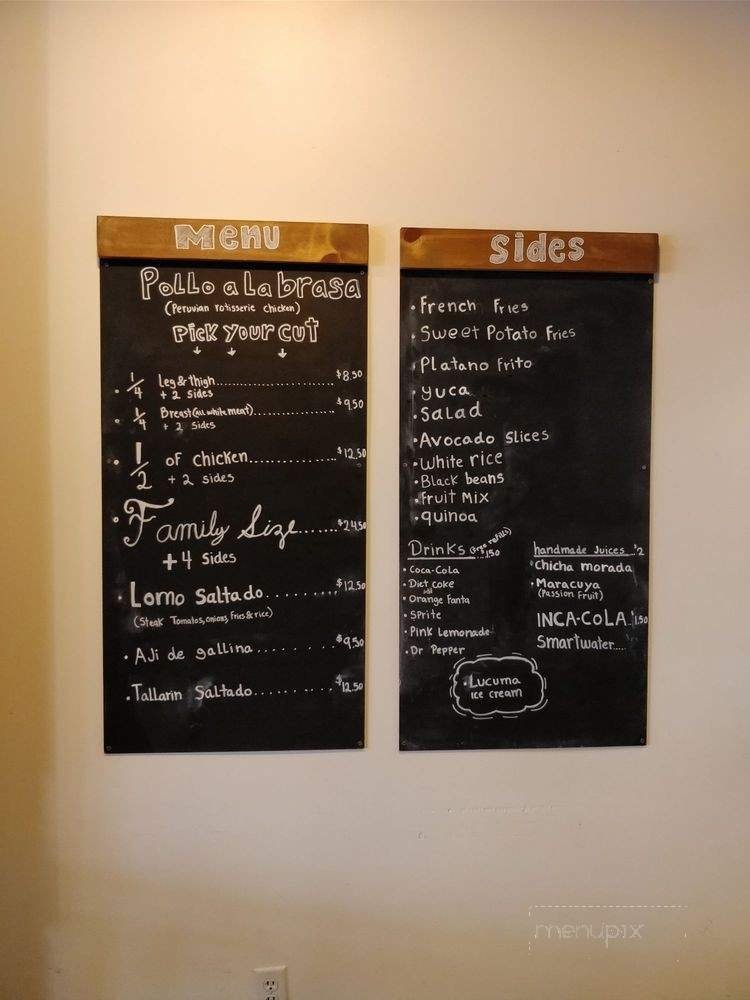 Menu
Pollo a la brasa
(Peruvian rotisserie chicken)
Pick your cut
1/4 Leg & thigh............ $8.50
+ 2 sides
1/4 Breast (all white meat)............ $9.50
+ 2 sides
1/2 of chicken............ $12.50
+ 2 sides
Family Size....... $24.50
+4 sides
Lomo Saltado........ $12.50
(Steak Tomatoes, onions, fries & rice)
Aji de gallina......... $9.50
Tallarin Saltado......... $12.50
Sides
French Fries
Sweet Potato Fries
Platano frito
yuca
Salad
Avocado Slices
White rice
Black beans
fruit mix
quinoa
Drinks (free refills) $1.50
Coca-Cola
Diet coke
Orange Fanta
Sprite
Pink Lemonade
Dr Pepper
handmade Juices.. $2
Chicha morada
Maracuya
(Passion Fruit)
INCA-COLA.. 1.50
Smartwater....
Lucuma
ice cream
menupix